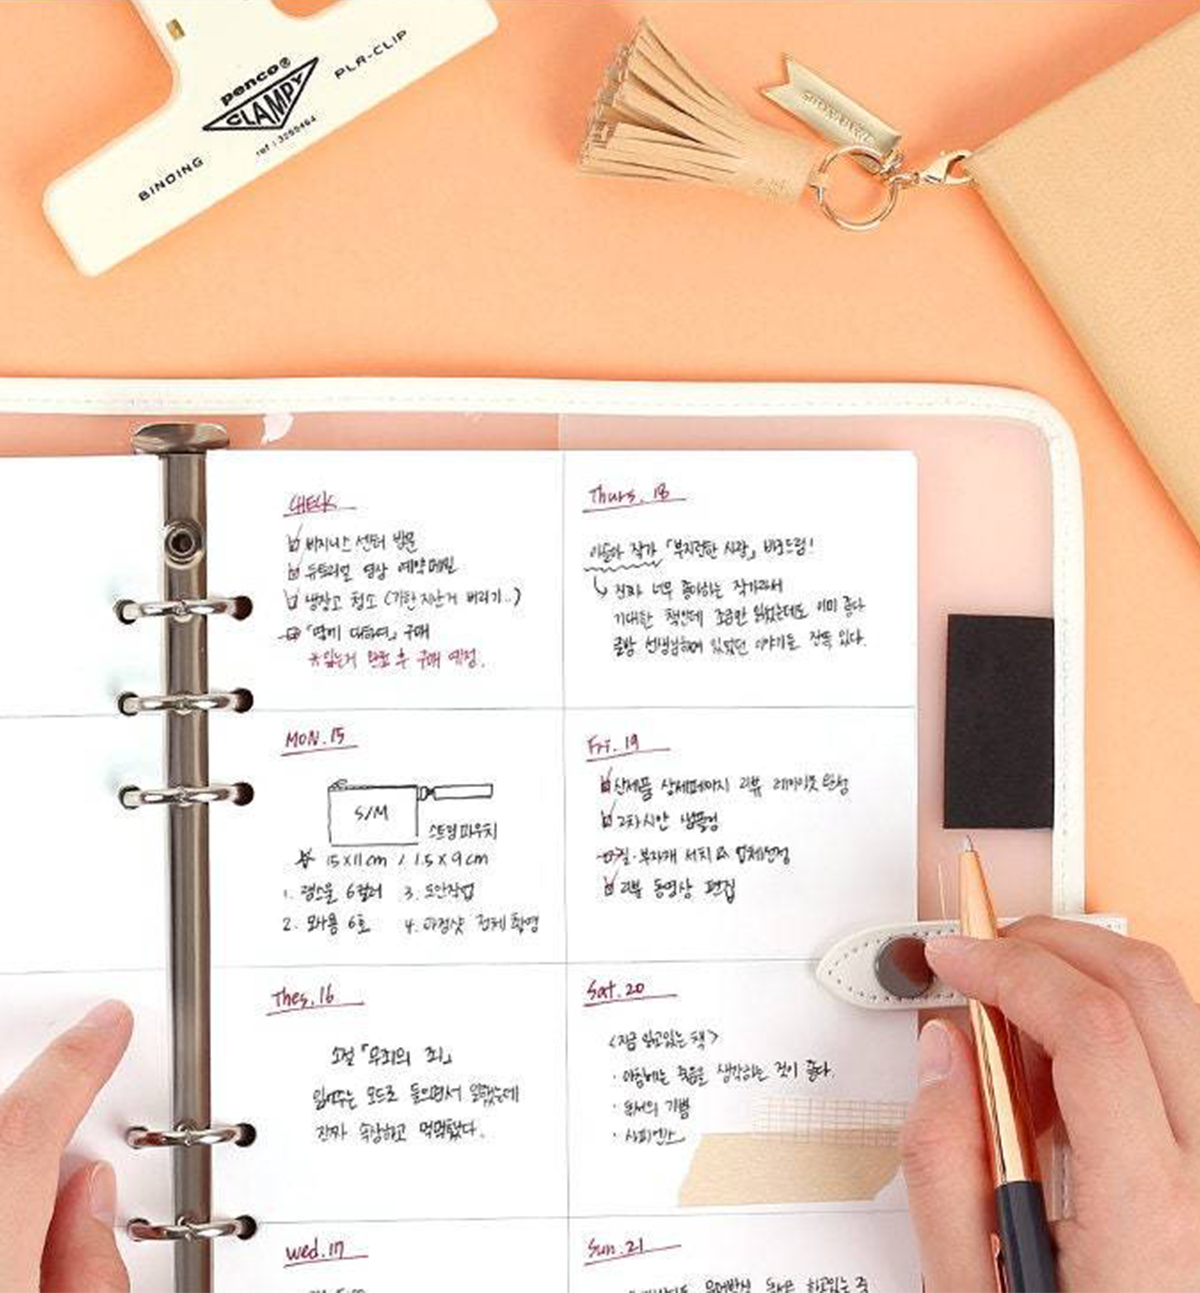 penco®
CLAMPY
PLA-CLIP
BINDING
ref : 3250464
CHECK
비지니스 센터 방문
튜토리얼 영상 예약메일
냉장고 청소 (기한지난거 버리기..)
대하여」 구매
※있는거 완료 후 구매 예정.
MON.15
S/M
스트랩파우치
15x11cm / 1.5x9cm
1. 6컬러 3. 도안작업
2. 6호 4. 전체 촬영
Thes.16
소설 「무죄의 죄」
읽어주는 모드로 들으면서 읽었는데
진짜 속상하고 먹먹했다.
wed.17
Thurs. 18
작가 「부지런한 사랑」 바로드림!
진짜 너무 좋아하는 작가라서
기대한 책인데 조금만 읽었는데도 이미 좋다
글방 선생님하며 있었던 이야기들 잔뜩 있다.
Fri. 19
신제품 상세페이지 리뷰 레이아웃 완성
2차시안 샘플링
부자재 서치 & 업체선정
리뷰 동영상 편집
Sat.20
<지금 읽고있는 책>
· 아침에는 죽음을 생각하는 것이 좋다.
· 독서의 기쁨
· 사피엔스
Sun.21
하고있는 중